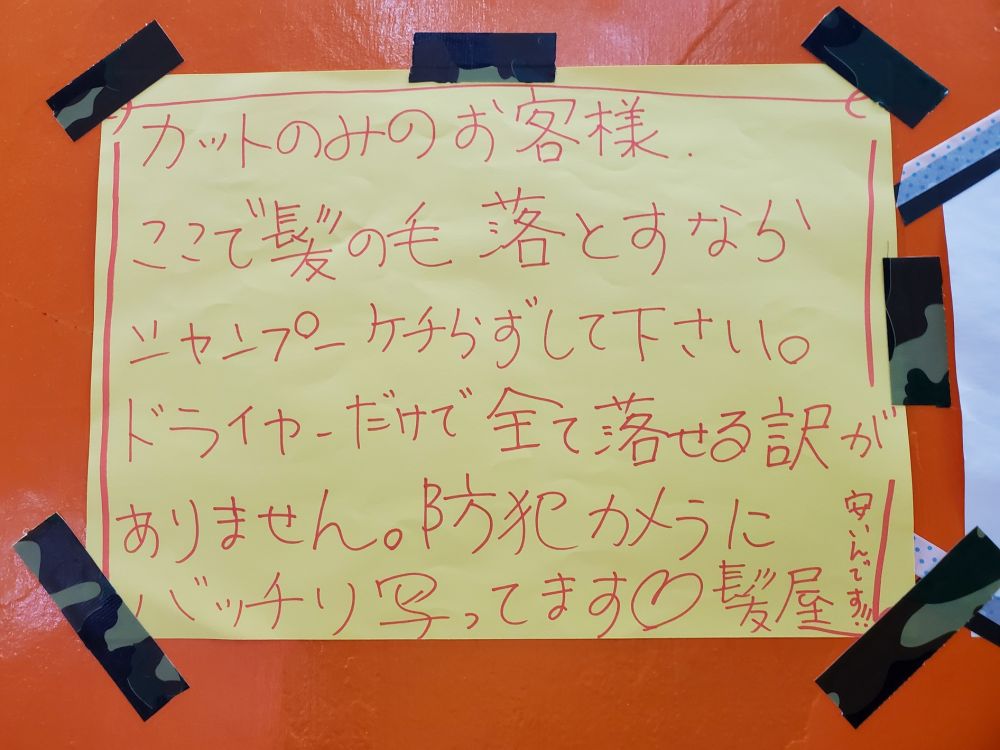 カットのみのお客様.
ここで髪の毛落とすなら
シャンプーケチらずして下さい。
ドライヤーだけで全て落せる訳が
ありません。防犯カメラに
バッチリ写ってます
髪屋
安いんです!!